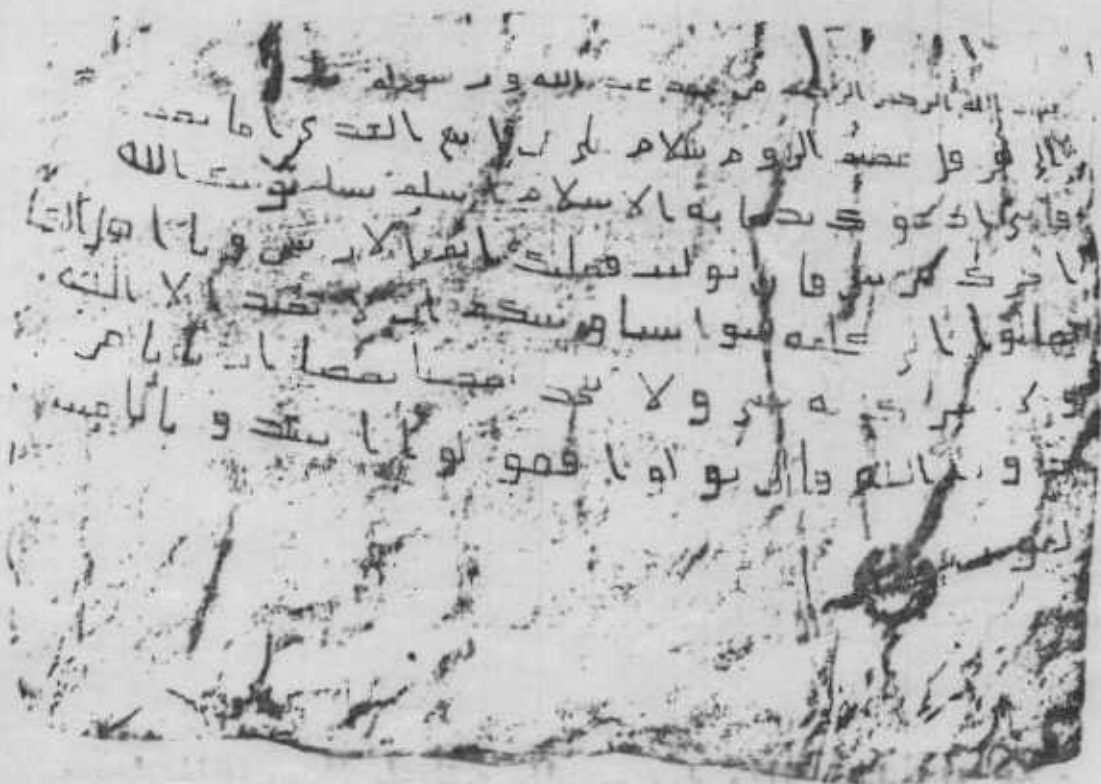 بسم الله الرحمن الرحيم من محمد عبد الله ورسوله
إلى هرقل عظيم الروم سلام على من اتبع الهدى أما بعد
فإني أدعوك بدعاية الإسلام أسلم تسلم يؤتك الله
أجرك مرتين فإن توليت فعليك إثم الأريسيين ويا أهل الكتاب
تعالوا إلى كلمة سواء بيننا وبينكم ألا نعبد إلا الله
ولا نشرك به شيئا ولا يتخذ بعضنا بعضا أربابا من
دون الله فإن تولوا فقولوا اشهدوا بأنا
مسلمون